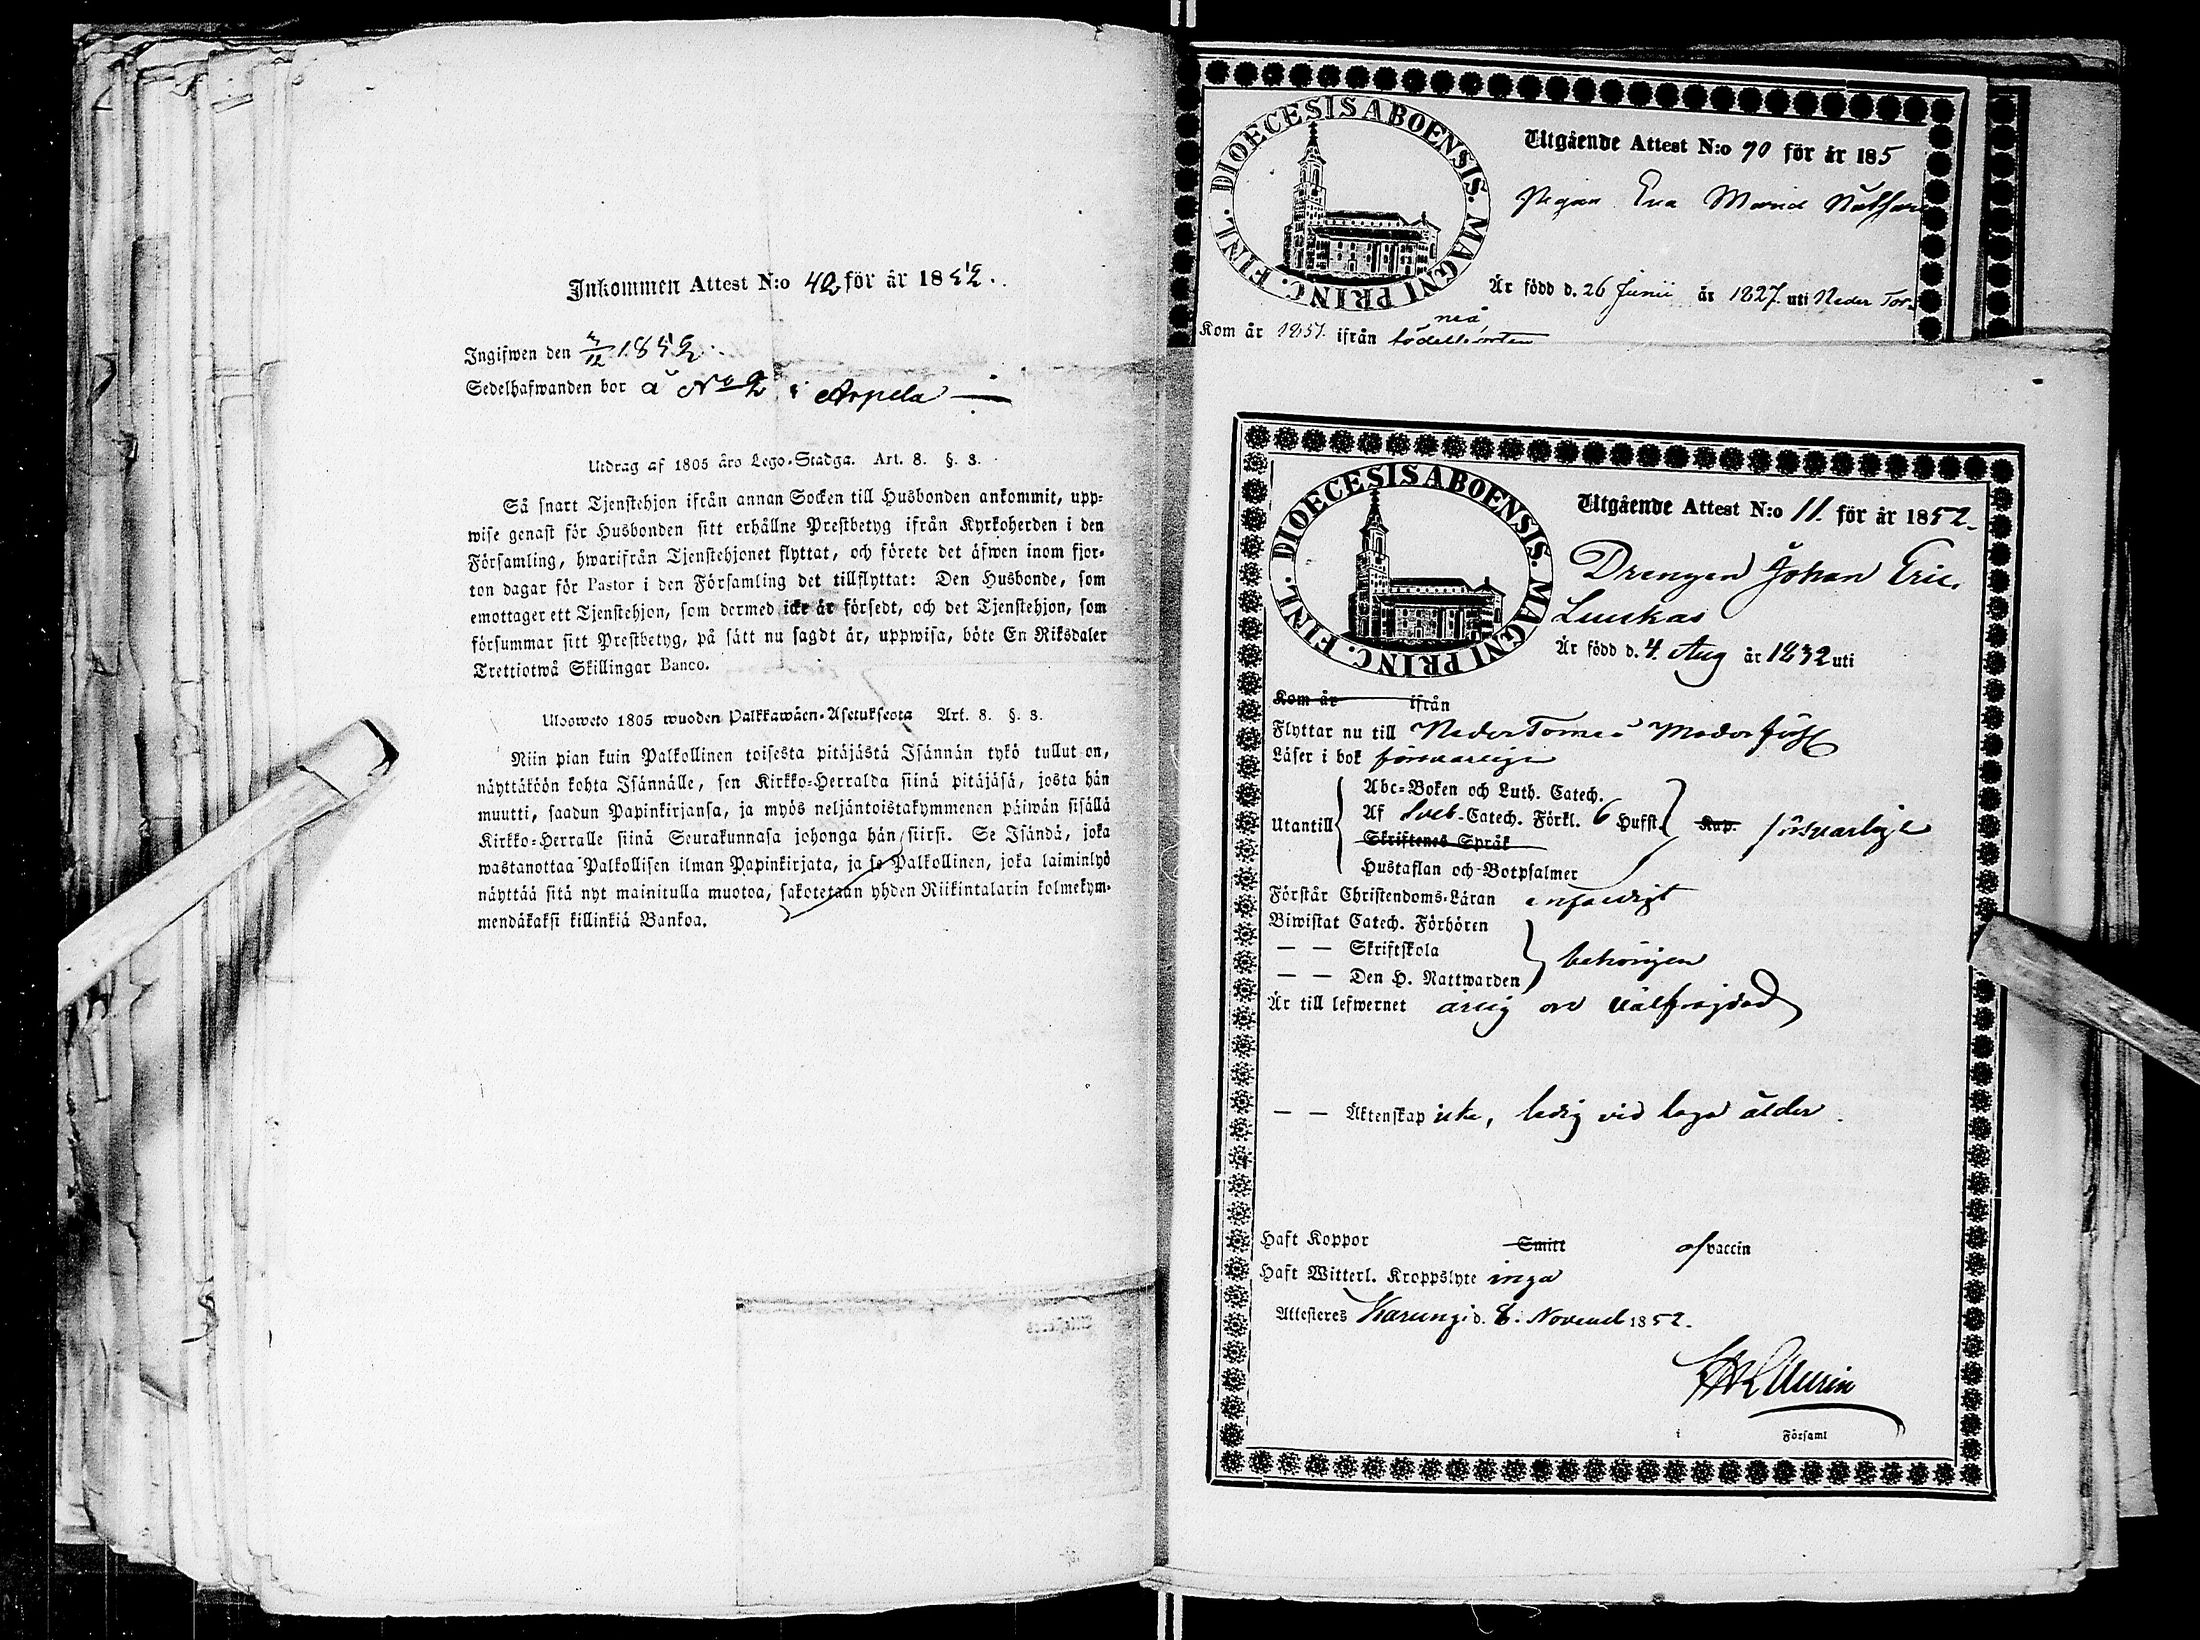 Inkommen Attest N:o 42 för år 1852.
Ingifwen den 7/12 1852.
Sedelhafwanden bor å No 2 i Arpela —
Utdrag af 1805 års Lego-Stadga. Art. 8. §. 3.
Så snart Tjenstehjon ifrån annan Socken till Husbonden ankommit, upp-
wise genast för Husbonden sitt erhållne Prestbetyg ifrån Kyrkoherden i den
Församling, hwarifrån Tjenstehjonet flyttat, och förete det äfwen inom fjor-
ton dagar för Pastor i den Församling det tillflyttat: Den Husbonde, som
emottager ett Tjenstehjon, som dermed icke är försedt, och det Tjenstehjon, som
försummar sitt Prestbetyg, på sätt nu sagdt är, uppwisa, böte En Riksdaler
Trettiotwå Skillingar Banco.
Ulosweto 1805 wuoden Palkkawäen-Asetuksesta Art. 8. §. 3.
Niin pian kuin Palkollinen toisesta pitäjästä Isännän tykö tullut on,
näyttäköön kohta Isännälle, sen Kirkko-Herralda siinä pitäjäsä, josta hän
muutti, saadun Papinkirjansa, ja myös neljäntoistakymmenen päiwän sisällä
Kirkko-Herralle siinä Seurakunnasa johonga hän siirsi. Se Isändä, joka
wastanottaa Palkollisen ilman Papinkirjata, ja se Palkollinen, joka laiminlyö
näyttää sitä nyt mainitulla muotoa, sakotetaan yhden Riikintalarin kolmekym-
mendäkaksi killinkiä Bankoa.
DIOECESIS ABOENSIS. MAGNI PRINC. FINL.
Utgående Attest N:o 90 för år 185
Pigan Eva Maria
Är född d. 26 Junii år 1827. uti Neder Tor-
neå
Kom år 1851. ifrån födelseorten
DIOECESIS ABOENSIS. MAGNI PRINC. FINL.
Utgående Attest N:o 11. för år 1852.
Drengen Johan Eric
Luukas
Är född d. 4. Aug år 1832 uti
Kom år ifrån
Flyttar nu till Neder Torneå Moderförs
Läser i bok försvarligt
Abc-Boken och Luth. Catech.
Utantill Af Sveb. Catech. Förkl. 6 Hufst. Kap. försvarligt
Skriftenes Språk
Hustaflan och Botpsalmer
Förstår Christendoms-Läran enfaldigt
Biwistat Catech. Förhören
— — Skriftskola behörigen
— — Den H. Nattwarden
Är till lefwernet ärlig och välfrejdad
— — Äktenskap icke, ledig vid laga ålder.
Haft Koppor Smitt af vaccin
Haft Witterl. Kroppslyte inga
Attesteres Karungi d. 8. Novemb 1852.
i Församl